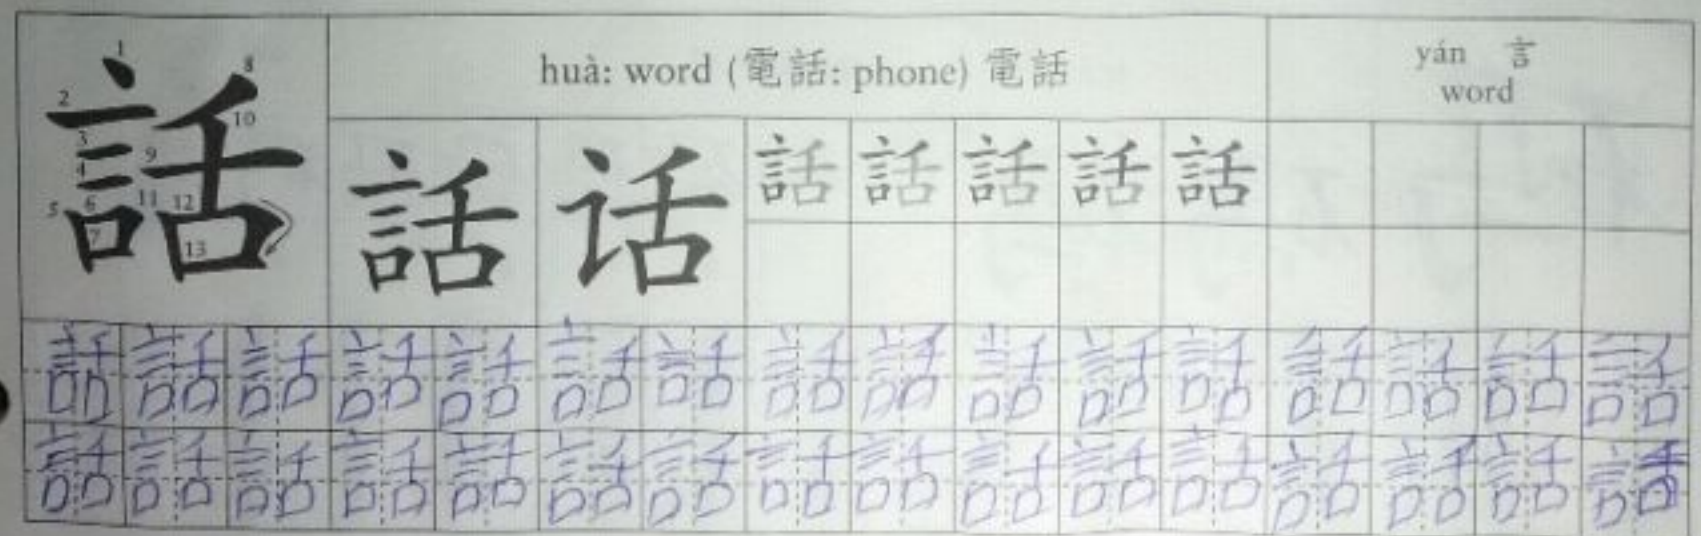 1 2 3 4 5 6 7 8 9 10 11 12 13
話
huà: word (電話: phone) 電話
yán 言
word
話 话 話 話 話 話 話
話 話 話 話 話 話 話 話 話 話 話 話 話 話 話 話
話 話 話 話 話 話 話 話 話 話 話 話 話 話 話 話